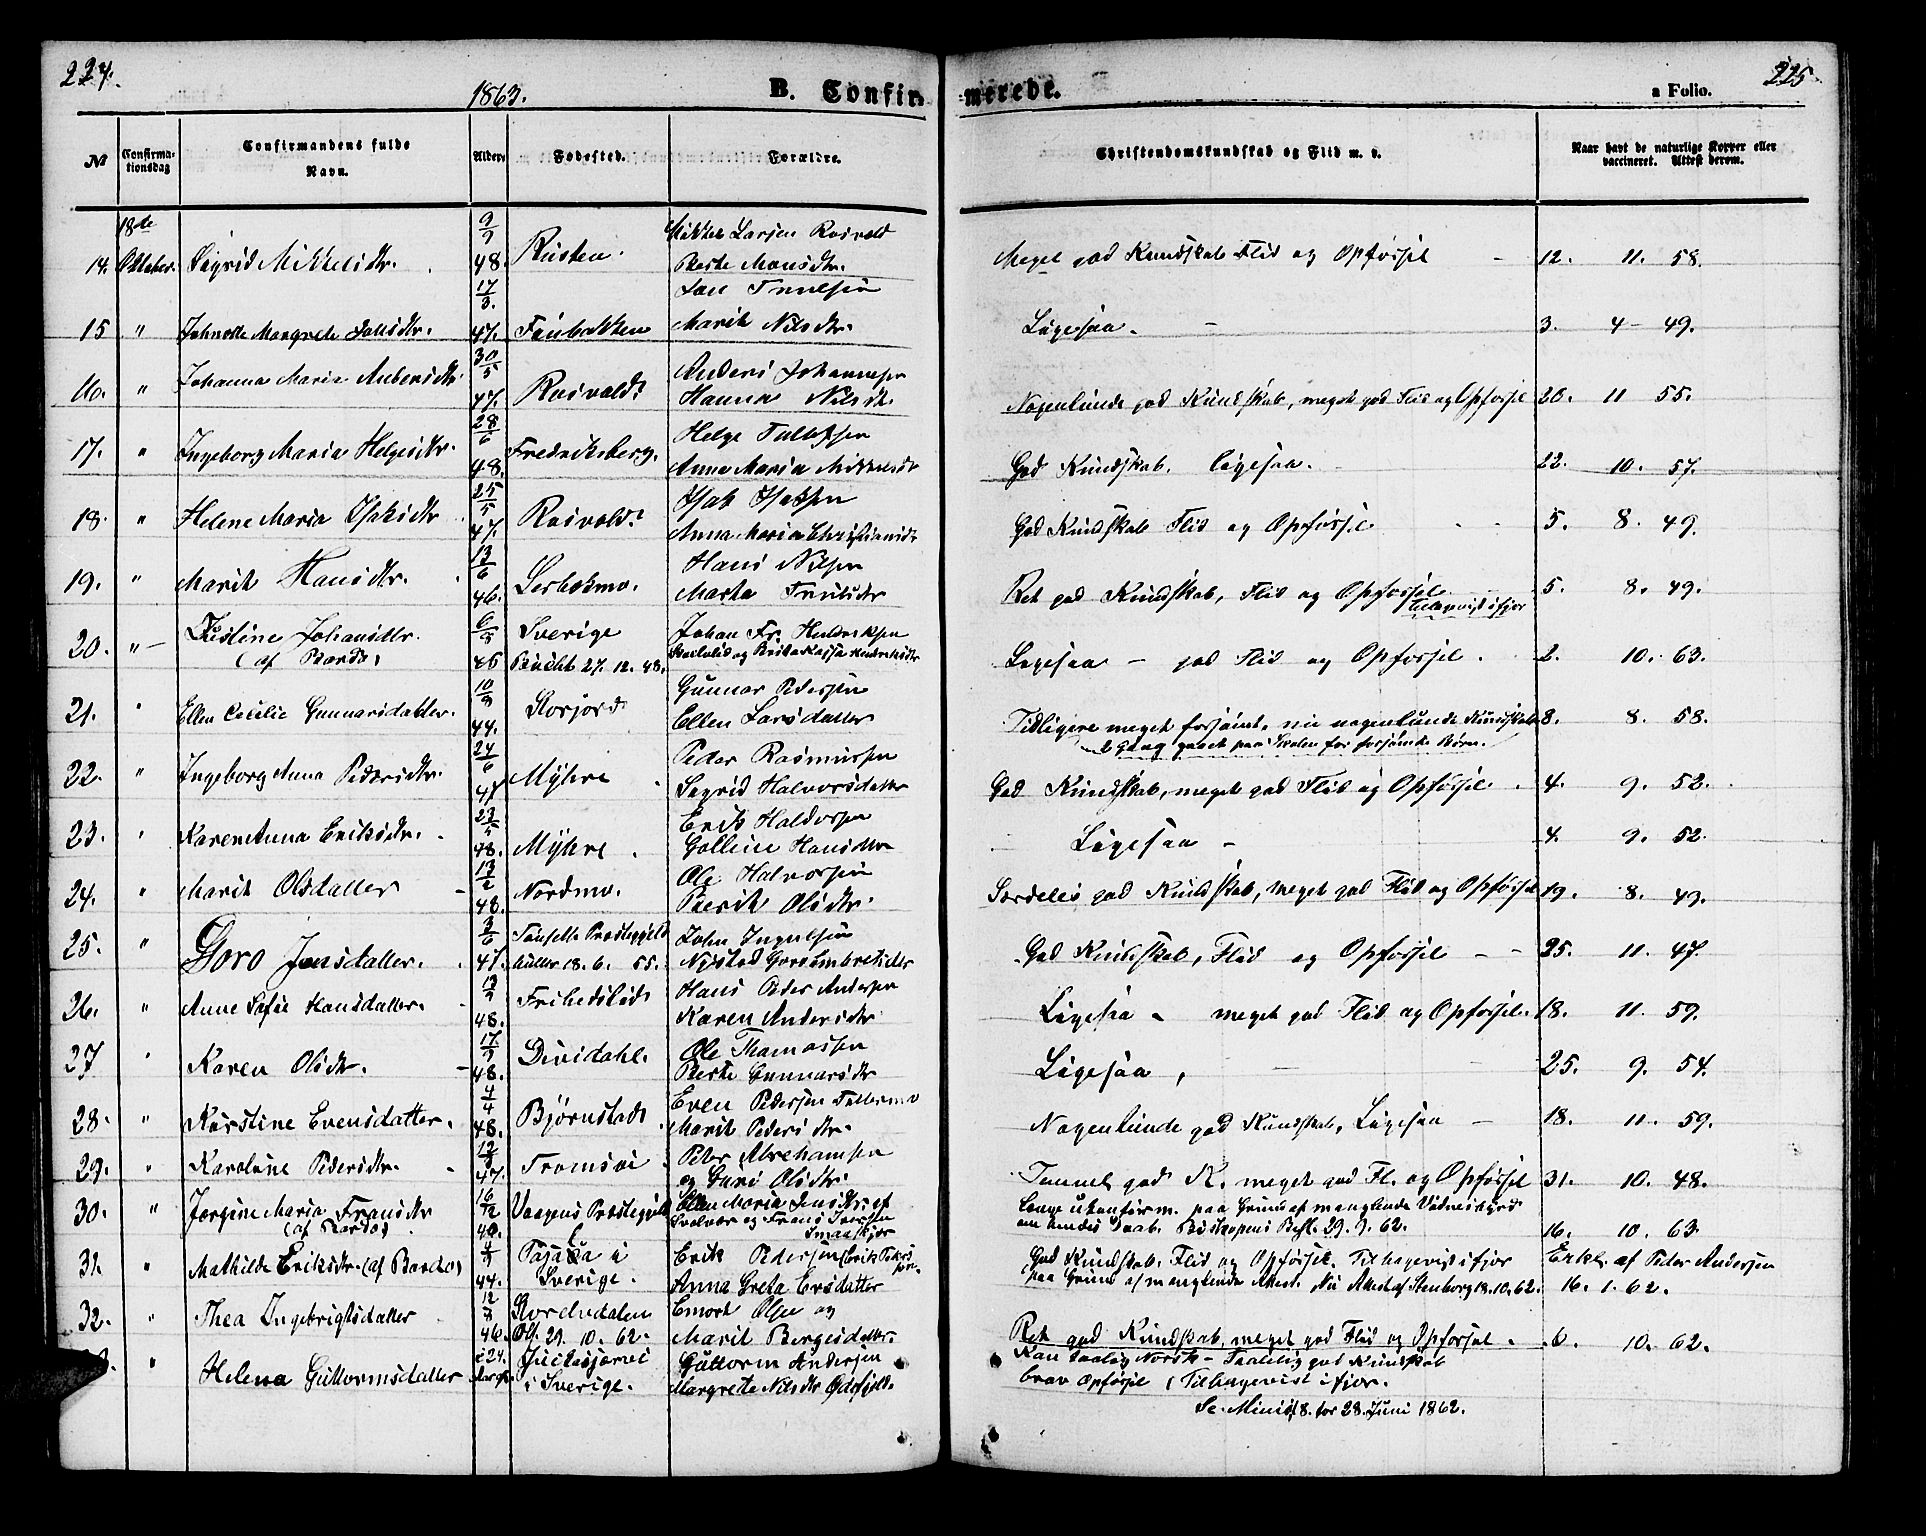 224.
1863.
B. Confirmerede.
225
a Folio.
No
Confirma-
tionsdag
Confirmandens fulde
Navn.
Alder.
Fødested.
Forældre.
Christendomskundskab og Flid m. v.
Naar havt de naturlige Kopper eller
vaccineret. Attest derom.
18de
14. Oktober. Sigrid Mikkelsdtr. 9/9 48. Rusten. Mikkel Larsen Rosvold
Berte Monsdtr. Meget god Kundskab Flid og Opførsel 12. 11. 58.
15 " Margrete Jonsdtr. 17/3 47. Foubakken Jon
Marit Nilsdtr. Ligesaa. 3. 4 49.
16. " Johanna Maria Andersdtr 30/5 47. Rosvold. Anders Johannesen
Hanna Nilsdtr Nogenlunde god Kundskab, meget god Flid og Opførsel 20. 11 55.
17. " Ingeborg Maria Helgesdtr. 28/6 48. Fredriksberg. Helge Tollefsen
Anna Maria Mikkelsdtr God Kundskab. ligesaa. 22. 10. 57.
18. " Helene Maria Isaksdtr 25/5 47. Rosvold. Isak Isaksen
Anna Maria Christiansdtr God Kundskab Flid og Opførsel 5. 8. 49.
19. " Marit Hansdtr. 13/6 46. Hans Nilsen
Marta Ret god Kundskab, Flid og Opførsel 5. 8. 49.
Tilbagevist ifjor
20. " Justine Johansdtr. 6/3 45 Sverige Johan Fr. Hendriksen
(af Bardo) 27. 12. 48. og Ligesaa - god Flid og Opførsel. 2. 10. 63.
21. " Ellen Cecilie Gunnarsdatter. 10/9 44. Storjord Gunnar Pedersen
Ellen Larsdatter Tidligere meget forsømt, nu nogenlunde Kundskab 8. 8. 58.
2 Gang gaaet paa Skolen for forsømte Børn.
22. " Ingeborg Anna Pedersdtr. 24/6 47 Myhre Peder Rasmussen
Sigrid Halvorsdatter God Kundskab, meget god Flid og Opførsel. 4. 9. 52.
23. " Karen Anna Eriksdtr. 23/5 48. Myhre. Erik Haldorsen
Golline Hansdtr Ligesaa - 4. 9. 52.
24. " Marit Olsdatter 13/2 48. Nordmo. Ole Halvorsen
Berit Olsdtr. Særdeles god Kundskab, meget god Flid og Opførsel 19. 8. 49.
25. " Goro Jonsdatter. 3/6 47. Tønsetts Præstegjeld John Ingulsen
18. 6. 55. Nystad God Kundskab, Flid og Opførsel 25. 11. 47.
26. " Anne Sofie Hansdatter. 48. Frihedsli Hans Peder Andersen
Karen Andersdtr. Ligesaa - meget god Flid og Opførsel. 18. 11. 59.
27 " Karen Olsdtr. 17/9 48. Dividahl. Ole Thomassen
Berte Gunnarsdtr Ligesaa, 25. 9. 54.
28. " Kirstine Evensdatter. 4/4 48. Bjørnstad Even Pedersen
Marit Pedersdtr. Nogenlunde god Kundskab, Ligesaa 18. 11. 59.
29. " Karoline Pedersdtr. 47. Tromsøe. Peter Abrahamsen
og Guri Olsdtr. Temmel. god K. meget god Fl. og Opførsel 31. 10. 48.
30. " Jørgine Maria Fransdtr 16/12 40. Vaagens Præstegjeld Ellen Maria Jensdtr. af
(af Bardo) Svolvær og Frans Iversen
Smaaskjær Længe ukonfirm. paa Grund af manglende Vidnesbyrd
om hendes Daab. Biskopens Besl. 29. 9. 62. 16. 10. 63
31. " Mathilde Eriksdtr. (af Bardo) 44. Pajala i
Sverige. Erik Pedersen
Anna Greta Ersdatter God Kundskab. Flid og Opførsel. Tilbagevist ifjor
paa Grund af manglende Attest. Nu Attest af Stenborg 18. 10. 62. Erkl. af Peder Andersen
16. 1. 62.
32. " Thea Ingebrigtsdatter 12/7 46. Olsen og
29. 10. 62. Marit Bergesdatter Ret god Kundskab, meget god Flid og Opførsel. 6. 10. 62.
" Helena Guttormsdatter 24. Jukkasjærvi
i Sverige. Guttorm Andersen
Margrete Nilsdtr Kan daarlig Norsk - Taalelig god Kundskab
brav Opførsel, Tilbagevist ifjor.
Se Minist. 8. for 28. Juni 1862.